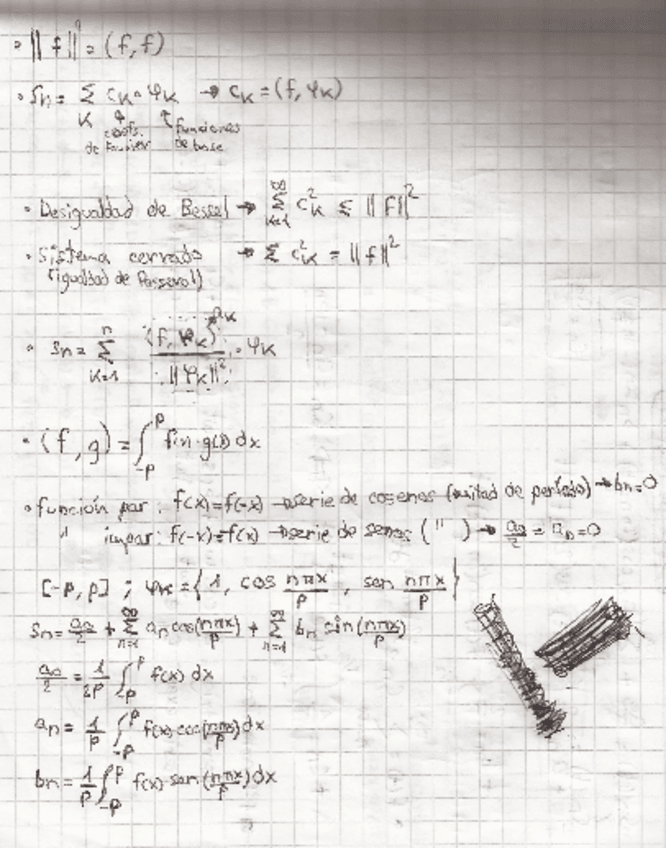 • ||f||² = (f, f)
• Sn = Σ cK · φK → cK = (f, φK)
K ↑ coefs. de Fourier ↑ funciones de base
• Desigualdad de Bessel → Σ K=1 ∞ c²K ≤ ||f||²
• Sistema cerrado → Σ c²K = ||f||²
(igualdad de Parseval)
• Sn = Σ K=1 n (f, φK) / ||φK||² · φK
• (f, g) = ∫ -p p f(x)·g(x) dx
• función par: f(x)=f(-x) → serie de cosenos (mitad de período) → bn=0
" impar: f(-x)=-f(x) → serie de senos ( " ) → a0/2 = an = 0
[-p, p] ; φK = { 1, cos nπx/p , sen nπx/p }
Sn = a0/2 + Σ n=1 ∞ an cos(nπx/p) + Σ n=1 ∞ bn sin(nπx/p)
a0/2 = 1/2p ∫ -p p f(x) dx
an = 1/p ∫ -p p f(x) cos(nπx/p) dx
bn = 1/p ∫ -p p f(x) sen(nπx/p) dx